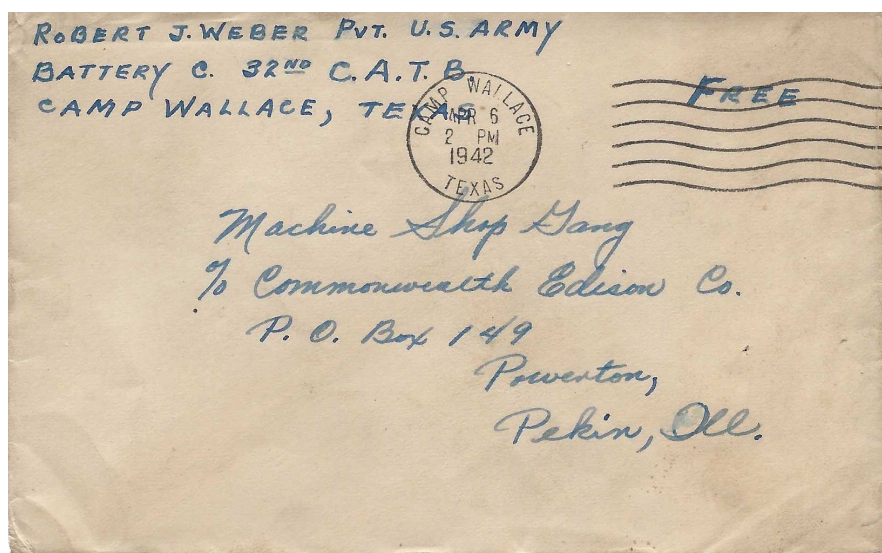 ROBERT J. WEBER PVT. U.S. ARMY
BATTERY C. 32ND C.A.T.B.
CAMP WALLACE, TEXAS
CAMP WALLACE
APR 6
2 PM
1942
TEXAS
FREE
Machine Shop Gang
c/o Commonwealth Edison Co.
P. O. Box 149
Powerton,
Pekin, Ill.